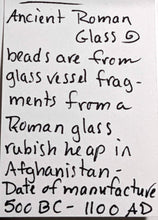 Ancient Roman
Glass
beads are from
glass vessel frag-
ments from a
Roman glass
rubish heap in
Afghanistan -
Date of manufacture
500 BC - 1100 AD